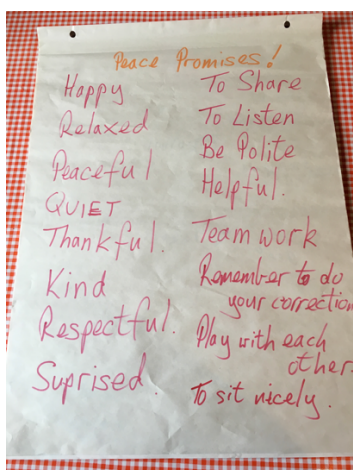 Peace Promises!
Happy
Relaxed
Peaceful
QUIET
Thankful.
Kind
Respectful.
Suprised.
To Share
To Listen
Be Polite
Helpful.
Team work
Remember to do
your correction
Play with each
other.
To sit nicely.